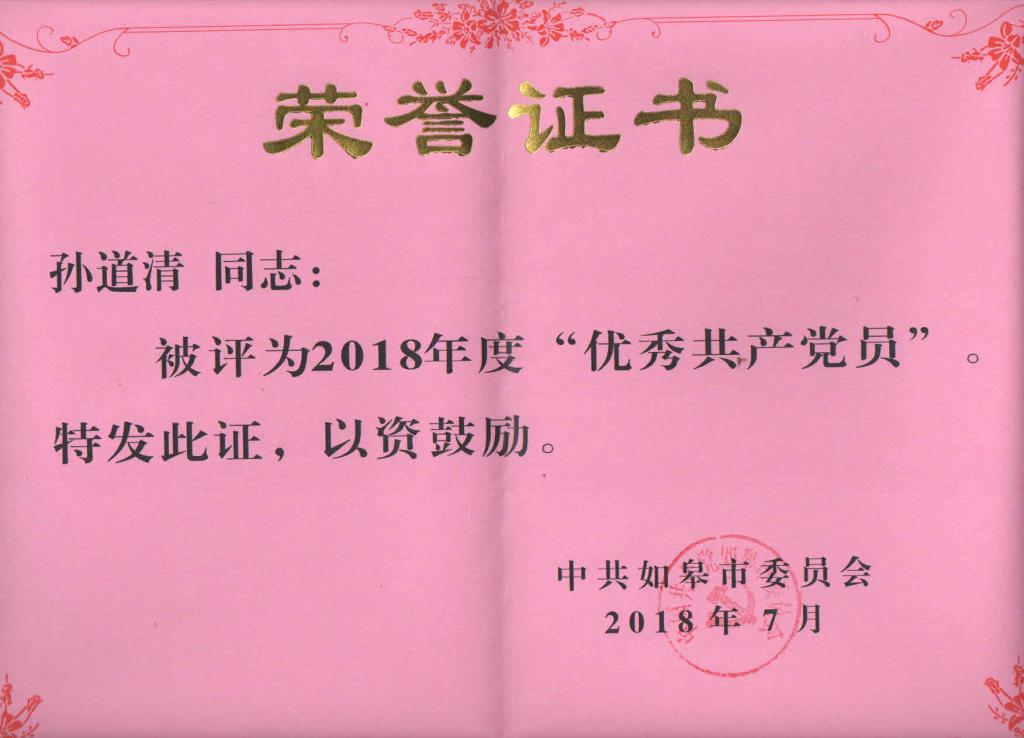 荣誉证书
孙道清 同志：
被评为2018年度“优秀共产党员”。
特发此证，以资鼓励。
中共如皋市委员会
2018年7月